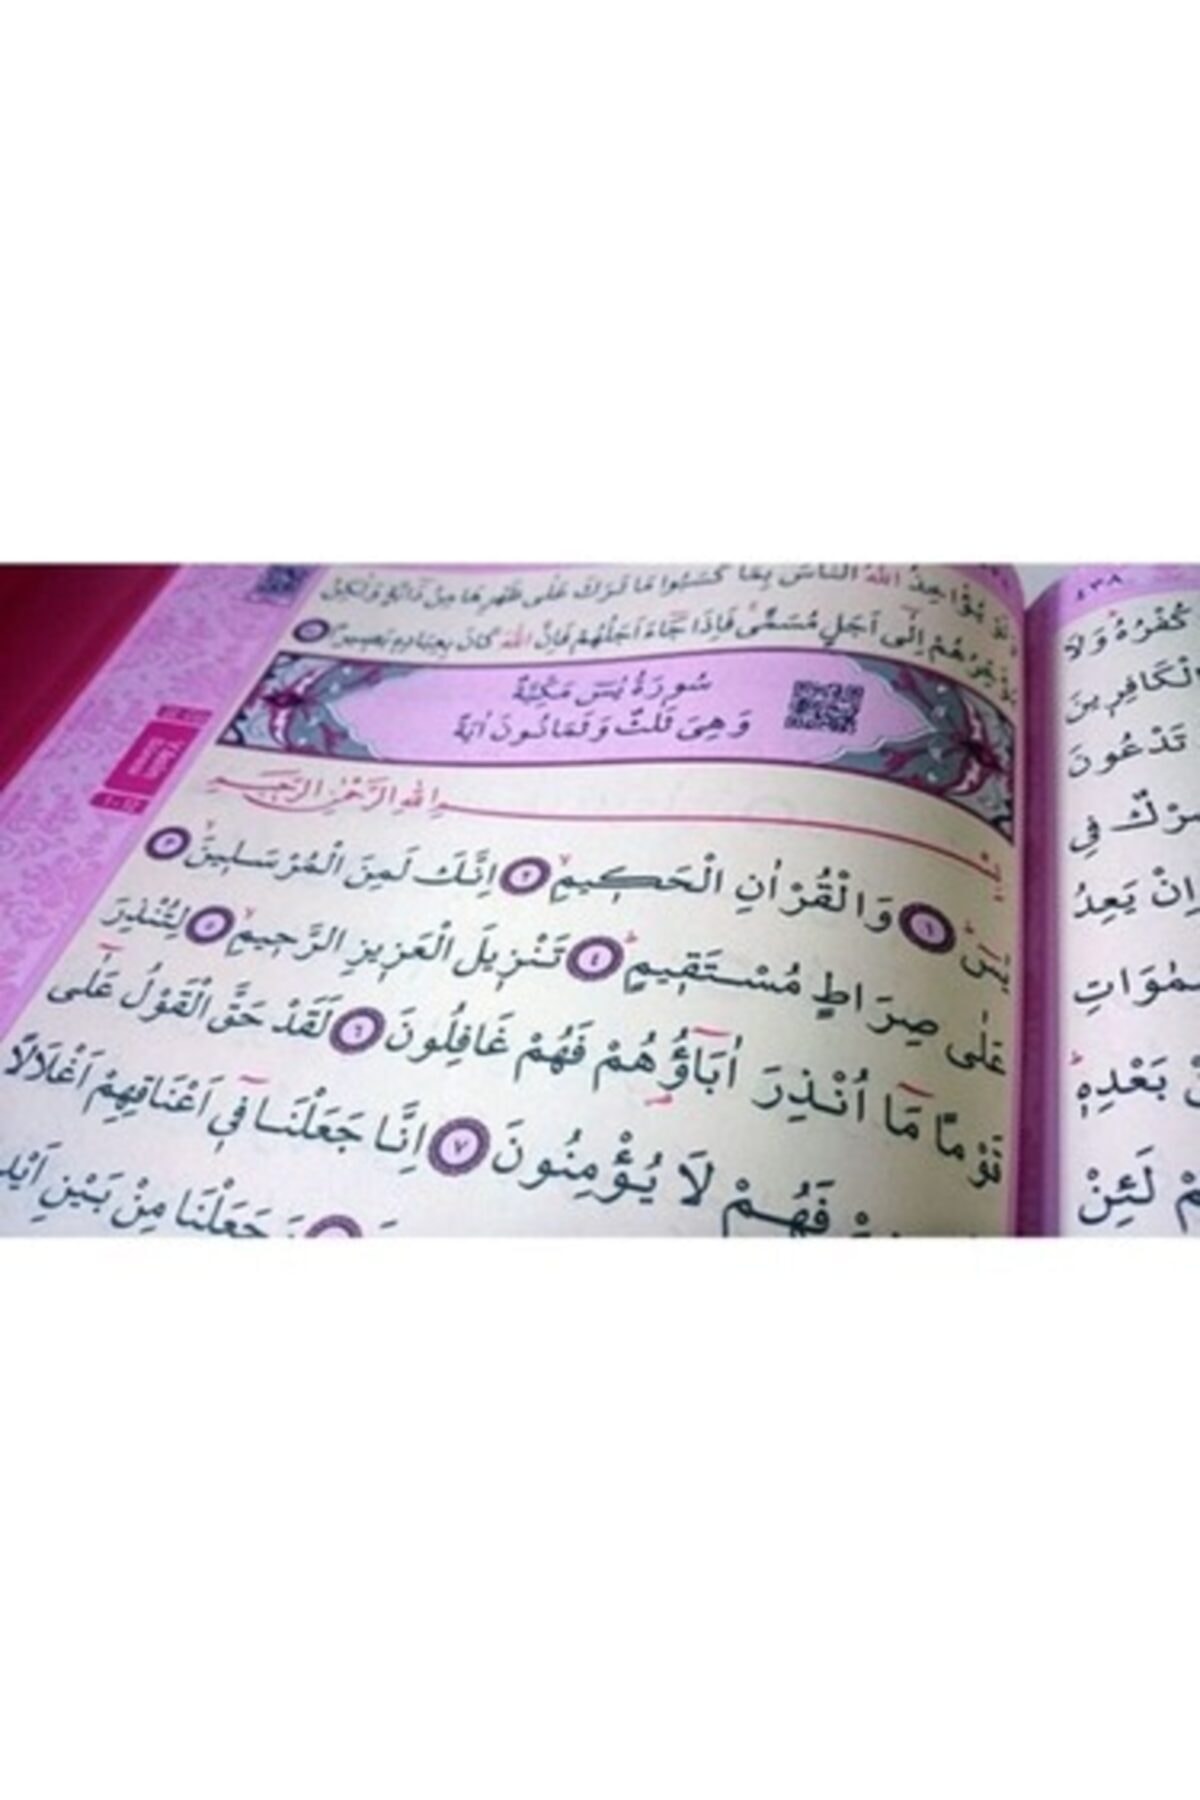 يُؤَاخِذُ اللّٰهُ النَّاسَ بِمَا كَسَبُوا مَا تَرَكَ عَلٰى ظَهْرِهَا مِنْ دَٓابَّةٍ وَلٰكِنْ
يُؤَخِّرُهُمْ اِلٰٓى اَجَلٍ مُسَمًّىۚ فَاِذَا جَٓاءَ اَجَلُهُمْ فَاِنَّ اللّٰهَ كَانَ بِعِبَادِهٖ بَصٖيرًا
سُورَةُ يٰسٓ مَكِّيَّةٌ
وَهِىَ ثَلٰثٌ وَثَمَانُونَ اٰيَةً
بِسْمِ اللّٰهِ الرَّحْمٰنِ الرَّحٖيمِ
يٰسٓۜ ﴿١﴾ وَالْقُرْاٰنِ الْحَكٖيمِۙ ﴿٢﴾ اِنَّكَ لَمِنَ الْمُرْسَلٖينَۙ ﴿٣﴾
عَلٰى صِرَاطٍ مُسْتَقٖيمٍۜ ﴿٤﴾ تَنْزٖيلَ الْعَزٖيزِ الرَّحٖيمِۙ ﴿٥﴾ لِتُنْذِرَ
قَوْمًا مَٓا اُنْذِرَ اٰبَٓاؤُ۬هُمْ فَهُمْ غَافِلُونَ ﴿٦﴾ لَقَدْ حَقَّ الْقَوْلُ عَلٰٓى
فَهُمْ لَا يُؤْمِنُونَ ﴿٧﴾ اِنَّا جَعَلْنَا فٖٓى اَعْنَاقِهِمْ اَغْلَالًا
جَعَلْنَا مِنْ بَيْنِ
٤٣٨
كُفْرُهُۜ وَلَا
الْكَافِرٖينَ
تَدْعُونَ
شِرْكٌ فِى
اِنْ يَعِدُ
بَعْدِهٖۜ
لَئِنْ